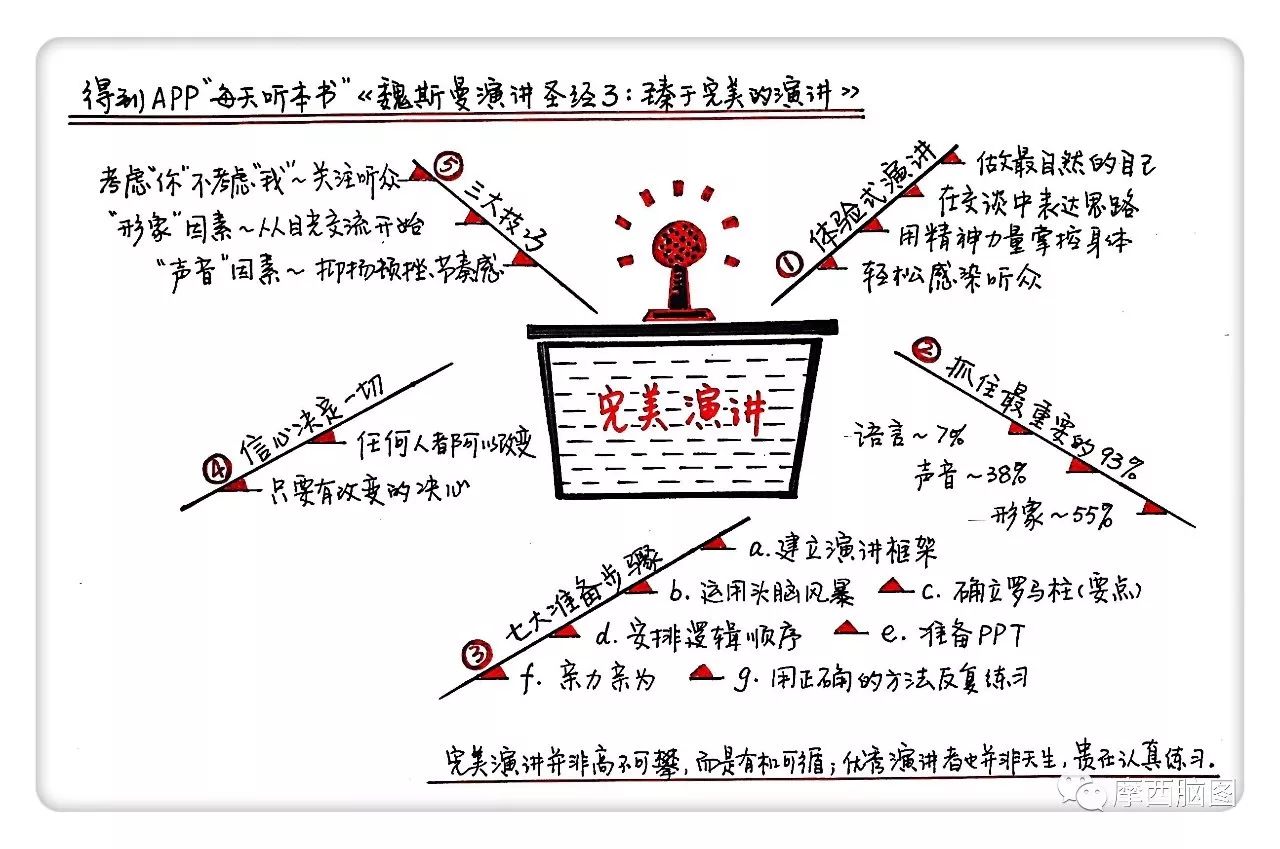 得到APP“每天听本书”《魏斯曼演讲圣经3：臻于完美的演讲》
① 体验式演讲
做最自然的自己
在交谈中表达思路
用精神力量掌控身体
轻松感染听众
② 抓住最重要的93%
语言~7%
声音~38%
形象~55%
③ 七大准备步骤
a.建立演讲框架
b.运用头脑风暴 c.确立罗马柱(要点)
d.安排逻辑顺序 e.准备PPT
f.亲力亲为 g.用正确的方法反复练习
④ 信心决定一切
任何人都可以改变
只要有改变的决心
⑤ 三大技巧
考虑“你”不考虑“我”~关注听众
“形象”因素~从目光交流开始
“声音”因素~抑扬顿挫、节奏感
完美演讲
完美演讲并非高不可攀，而是有机可循；优秀演讲者也并非天生，贵在认真练习。
摩西脑图